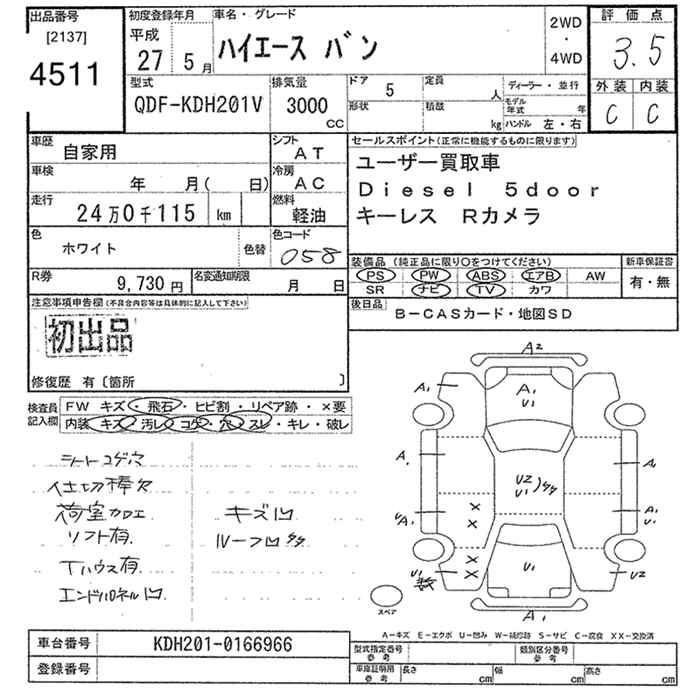 出品番号
[2137]
4511
初度登録年月
平成
27 5月
車名・グレード
ハイエース バン
2WD
・
4WD
評価点
3.5
外装 内装
C C
型式
QDF-KDH201V
排気量
3000
CC
ドア 5
形状
定員 人
積載 kg
ディーラー・並行
モデル年式 年
ハンドル 左・右
車歴
自家用
シフト
AT
車検
年 月( 日)
冷房
AC
走行
24万0千115 km
燃料
軽油
色
ホワイト
色替
色コード
058
R券
9,730円
名変通知期限
月 日
セールスポイント(正常に機能するものに限ります)
ユーザー買取車
Diesel 5door
キーレス Rカメラ
装備品(純正品に限り○をつけてください)
PS PW ABS エアB AW
SR ナビ TV カワ
新車保証書
有・無
後日品
B-CASカード・地図SD
注意事項申告欄(不具合内容等は具体的に記入して下さい)
初出品
修復歴 有〔箇所 〕
検査員記入欄
FW キズ・飛石・ヒビ割・リペア跡・×要
内装 キズ・汚レ・コゲ・穴・スレ・キレ・破レ
シートコゲ穴
仕切棒欠
荷室加工
リフト有
Tハウス有
エンドパネル凹
キズ凹
ルーフ凹
A2
A1
A1
U1
A1
A1
A1
U2
U1
UA1
A1
U1
U1
U1
U2
A1
スペア
A-キズ E-エクボ U-凹み W-補修跡 S-サビ C-腐食 XX-交換済
車台番号
KDH201-0166966
登録番号
型式指定番号
参考
類別区分番号
参考
車庫証明用
参考
長さ cm
幅 cm
高さ cm